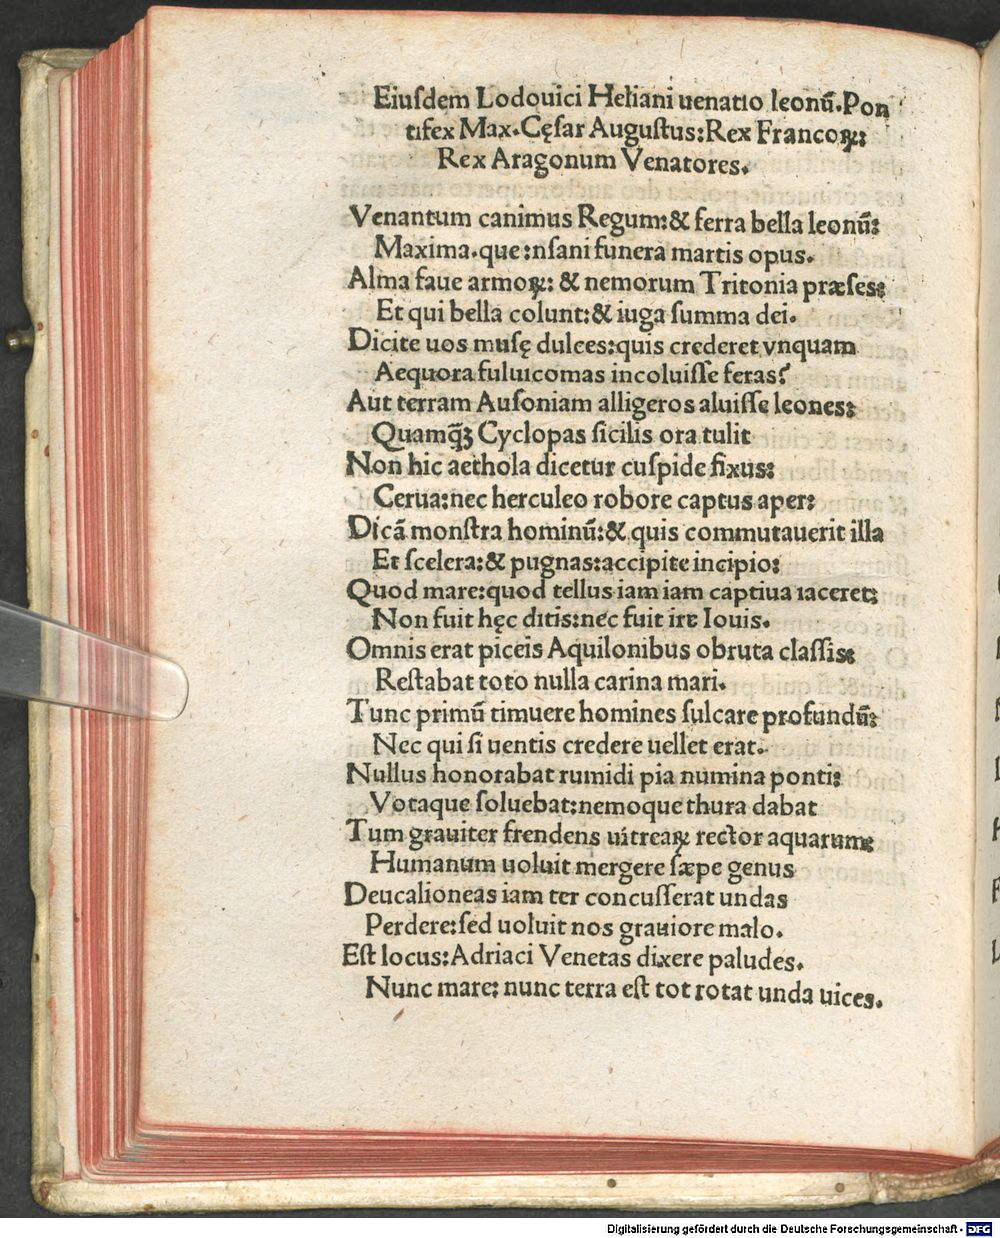 Eiuſdem Lodouici Heliani uenatio leonū.Pon
tifex Max.Cęſar Auguſtus:Rex Francoꝝ:
Rex Aragonum Venatores.
Venantum canimus Regum:& ferra bella leonū:
Maxima.que:nſani funera martis opus.
Alma faue armoꝝ: & nemorum Tritonia præſes:
Et qui bella colunt:& iuga ſumma dei.
Dicite uos muſę dulces:quis crederet vnquam
Aequora fuluicomas incoluiſſe feras?
Aut terram Auſoniam alligeros aluiſſe leones:
Quamq̄ꝫ Cyclopas ſicilis ora tulit
Non hic aethola dicetur cuſpide fixus:
Cerua:nec herculeo robore captus aper:
Dicā monſtra hominū:& quis commutauerit illa
Et ſcelera:& pugnas:accipite incipio:
Quod mare:quod tellus iam iam captiua iaceret:
Non fuit hęc ditis:nec fuit ire Iouis.
Omnis erat piceis Aquilonibus obruta claſſis:
Reſtabat toto nulla carina mari.
Tunc primū timuere homines ſulcare profundū:
Nec qui ſi uentis credere uellet erat.
Nullus honorabat rumidi pia numina ponti:
Votaque ſoluebat:nemoque thura dabat
Tum grauiter frendens uitreaꝝ rector aquarum:
Humanum uoluit mergere ſæpe genus
Deucalioneas iam ter concuſſerat undas
Perdere:ſed uoluit nos grauiore malo.
Eſt locus:Adriaci Venetas dixere paludes.
Nunc mare: nunc terra eſt tot rotat unda uices.
Digitalisierung gefördert durch die Deutsche Forschungsgemeinschaft - DFG